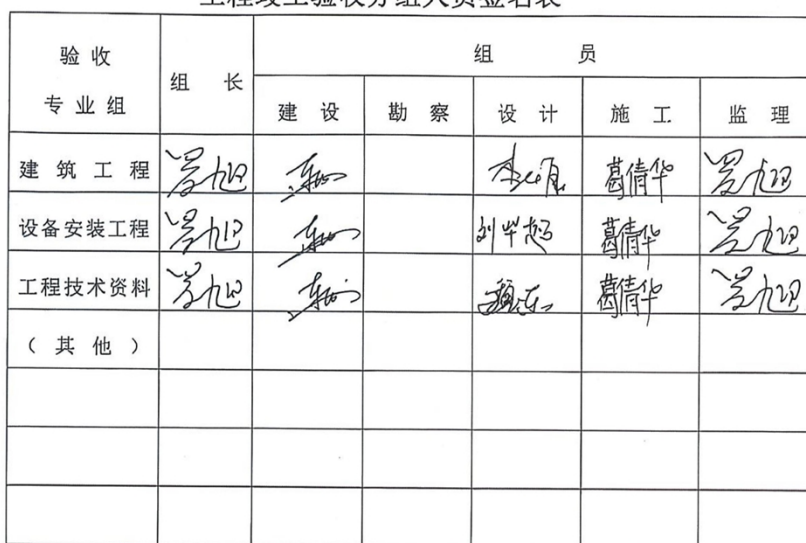 工程竣工验收分组人员签名表
验收专业组 组长 组员
建设 勘察 设计 施工 监理
建筑工程 罗旭 葛倩华 罗旭
设备安装工程 罗旭 葛倩华 罗旭
工程技术资料 罗旭 葛倩华 罗旭
(其他)